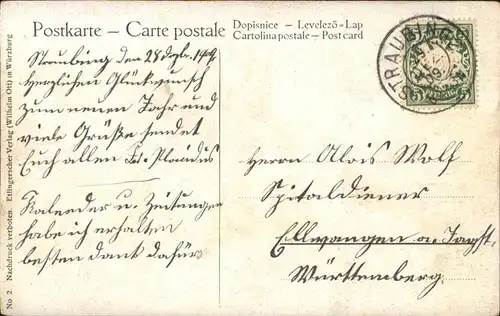 Postkarte — Carte postale
Dopisnice — Levelező-Lap
Cartolina postale — Post card
Straubing, den 28. Dezb. 1909.
Herzlichen Glückwunsch
zum neuen Jahr und
viele Grüße sendet
Euch allen Fr. Plazidus
Kalender u. Zeitungen
habe ich erhalten
besten Dank dafür
STRAUBING
5
Herrn Alois Wolf
Spitaldiener
Ellwangen a. Jagst.
Württemberg.
No 2. Nachdruck verboten. Ettlingerscher Verlag (Wilhelm Ott) in Würzburg